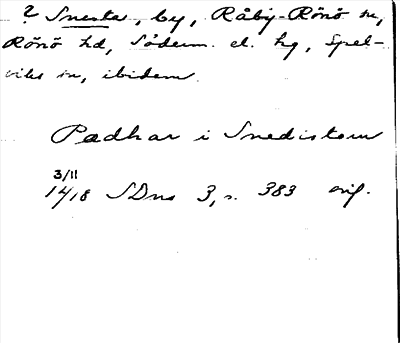 ? Snesta, by, Råby-Rönö sn,
Rönö hd, Söderm. el. hg, Spel-
viks sn, ibidem.
Padhar i Snedistom
3/11
1418 SDns 3, s. 383 orig.